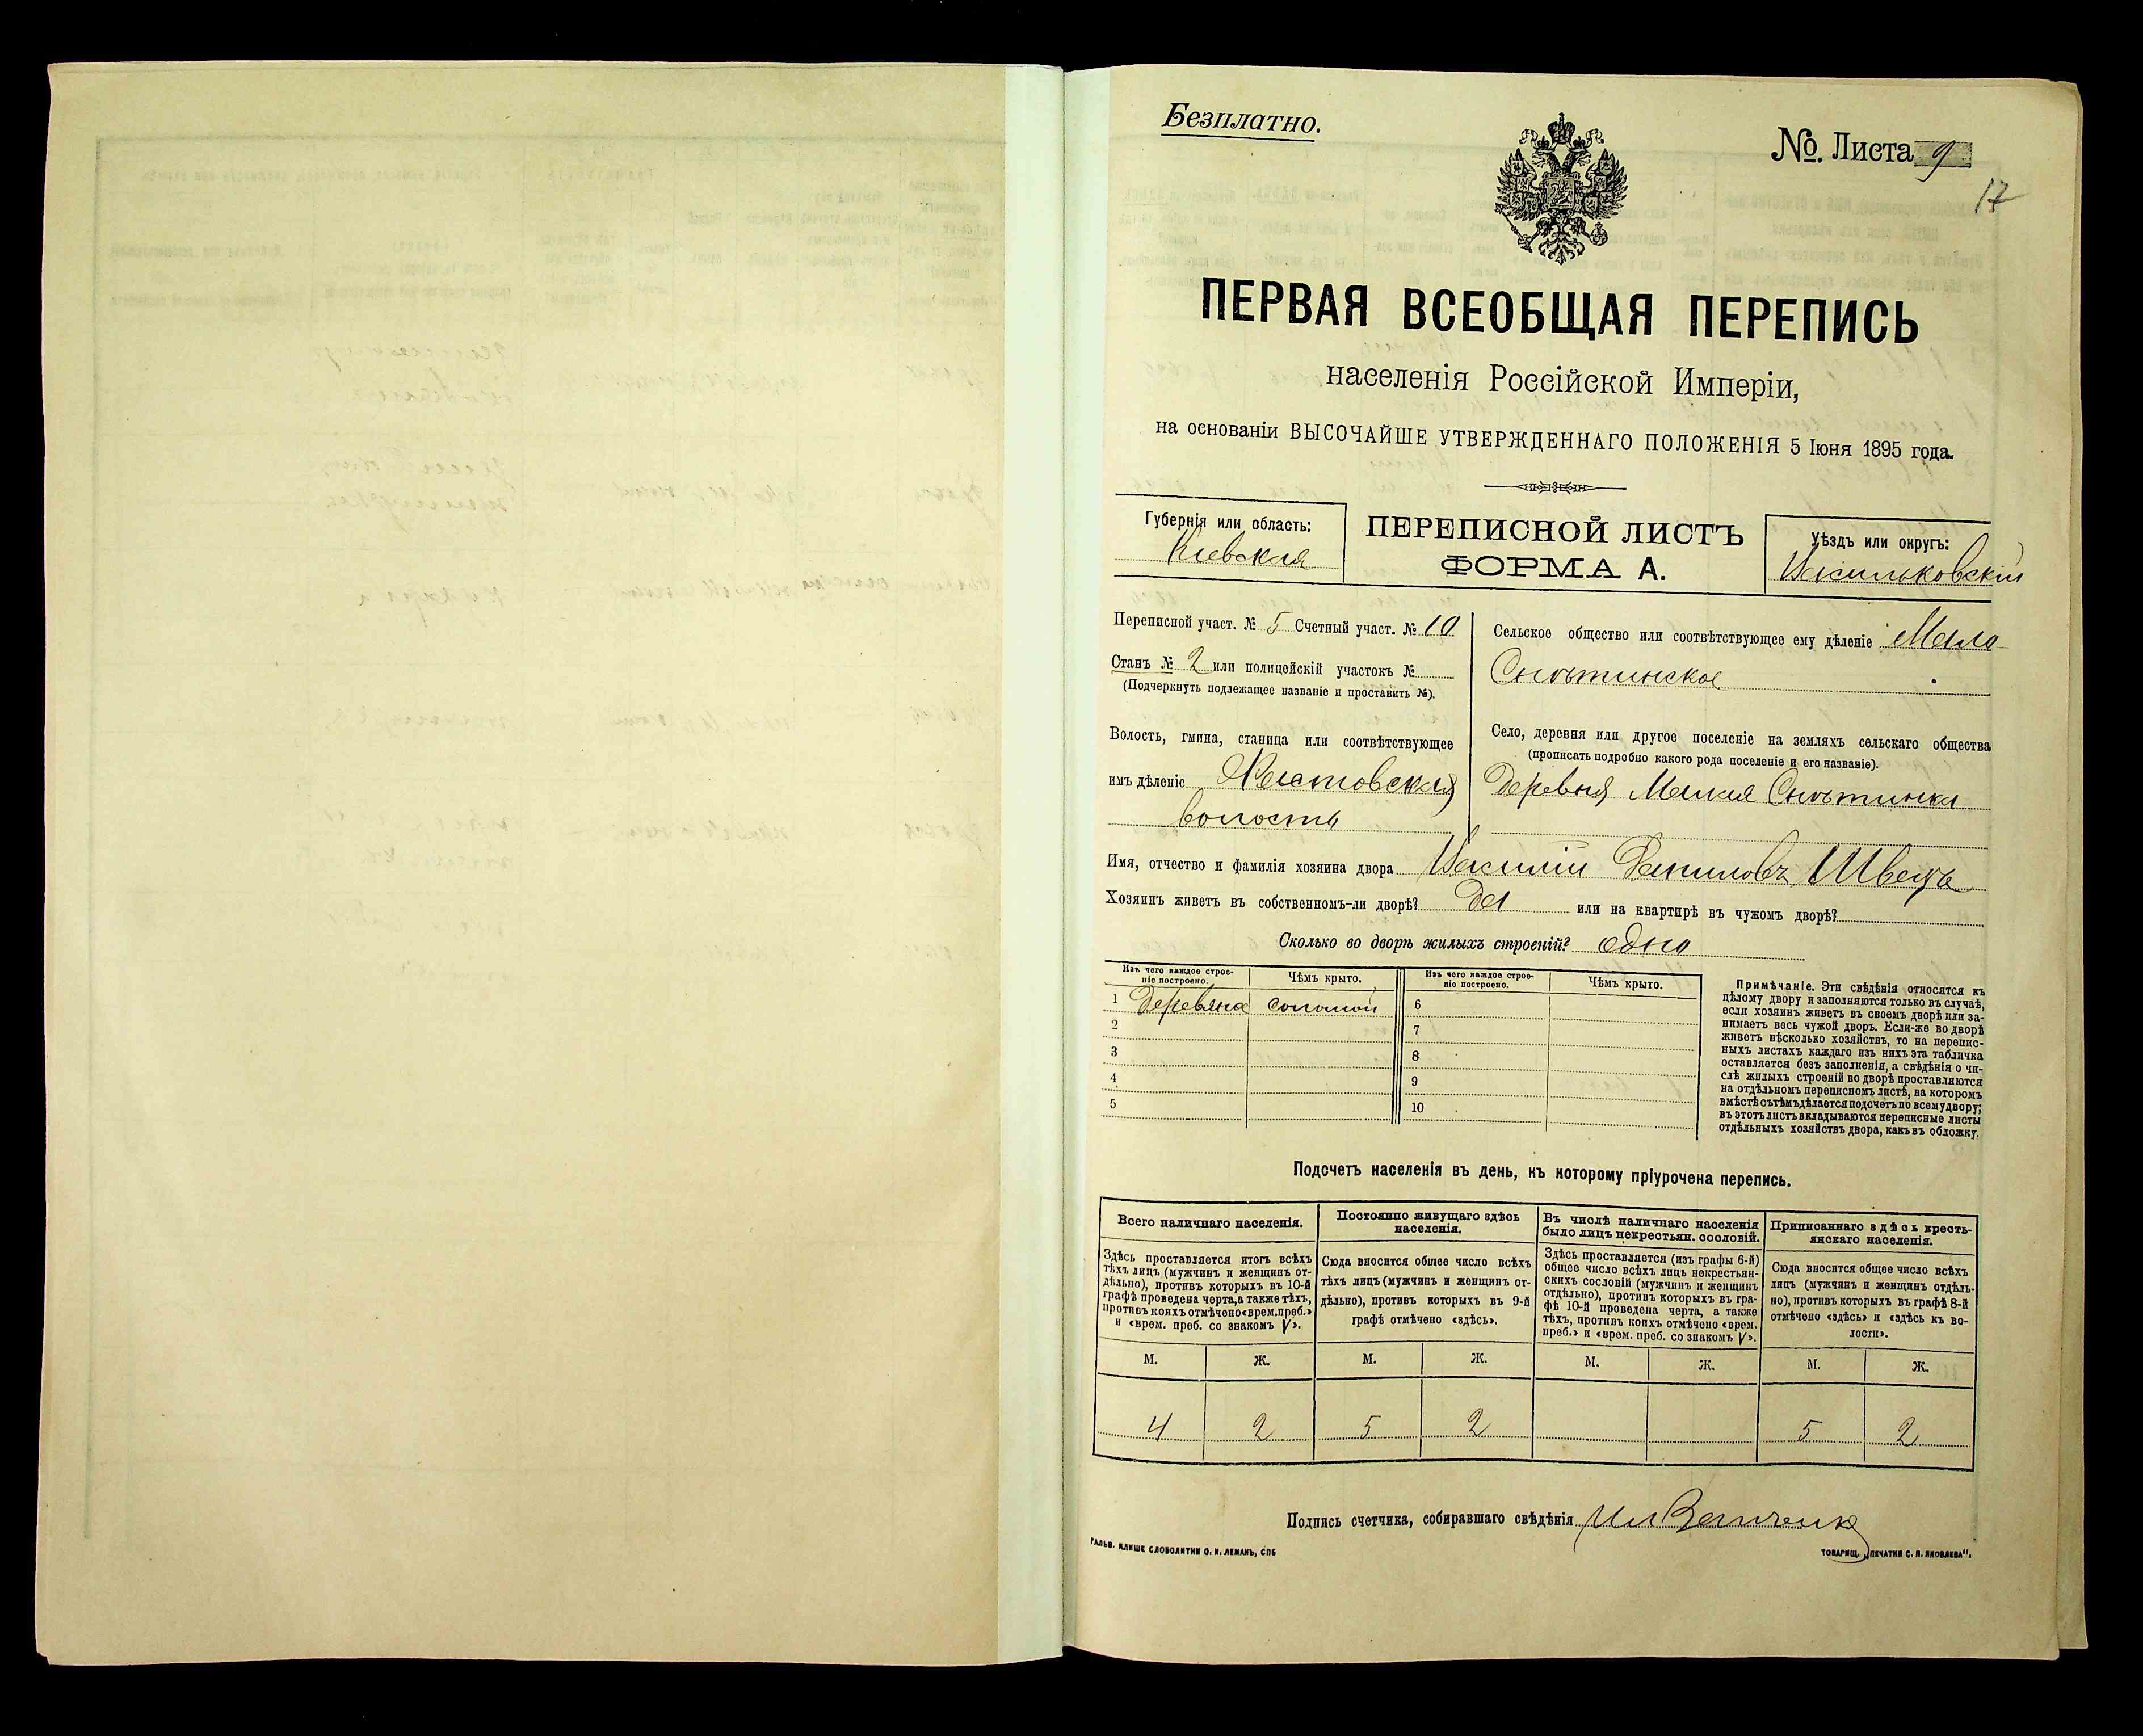 Безплатно.
№. Листа 9
17
ПЕРВАЯ ВСЕОБЩАЯ ПЕРЕПИСЬ
населенія Россійской Имперіи,
на основаніи ВЫСОЧАЙШЕ УТВЕРЖДЕННАГО ПОЛОЖЕНІЯ 5 Іюня 1895 года.
Губернія или область:
Кіевская
ПЕРЕПИСНОЙ ЛИСТЪ
ФОРМА А.
Уѣздъ или округъ:
Васильковскій
Переписной участ. № 5 Счетный участ. № 10
Станъ № 2 или полицейскій участокъ №
(Подчеркнуть подлежащее названіе и проставить №).
Волость, гмина, станица или соотвѣтствующее
имъ дѣленіе
волость
Сельское общество или соотвѣтствующее ему дѣленіе Мало-
Снѣтинское
Село, деревня или другое поселеніе на земляхъ сельскаго общества
(прописать подробно какого рода поселеніе и его названіе).
Деревня Малая Снѣтинка
Имя, отчество и фамилія хозяина двора Василій Даниловъ Швець
Хозяинъ живетъ въ собственномъ-ли дворѣ? Да или на квартирѣ въ чужомъ дворѣ?
Сколько во дворѣ жилыхъ строеній? одно
Изъ чего каждое строе-
ніе построено.
Чѣмъ крыто.
Изъ чего каждое строе-
ніе построено.
Чѣмъ крыто.
1 Деревяное соломой 6
2 7
3 8
4 9
5 10
Примѣчаніе. Эти свѣдѣнія относятся къ
цѣлому двору и заполняются только въ случаѣ,
если хозяинъ живетъ въ своемъ дворѣ или за-
нимаетъ весь чужой дворъ. Если-же во дворѣ
живетъ нѣсколько хозяйствъ, то на перепис-
ныхъ листахъ каждаго изъ нихъ эта табличка
оставляется безъ заполненія, а свѣдѣнія о чи-
слѣ жилыхъ строеній во дворѣ проставляются
на отдѣльномъ переписномъ листѣ, на которомъ
вмѣстѣ съ тѣмъ дѣлается подсчетъ по всему двору;
въ этотъ листъ вкладываются переписные листы
отдѣльныхъ хозяйствъ двора, какъ въ обложку.
Подсчетъ населенія въ день, къ которому пріурочена перепись.
Всего наличнаго населенія.
Здѣсь проставляется итогъ всѣхъ
тѣхъ лицъ (мужчинъ и женщинъ от-
дѣльно), противъ которыхъ въ 10-й
графѣ проведена черта, а также тѣхъ,
противъ коихъ отмѣчено «врем. преб.»
и «врем. преб. со знакомъ V».
Постоянно живущаго здѣсь
населенія.
Сюда вносится общее число всѣхъ
тѣхъ лицъ (мужчинъ и женщинъ от-
дѣльно), противъ которыхъ въ 9-й
графѣ отмѣчено «здѣсь».
Въ числѣ наличнаго населенія
было лицъ некрестьян. сословій.
Здѣсь проставляется (изъ графы 6-й)
общее число всѣхъ лицъ некрестьян-
скихъ сословій (мужчинъ и женщинъ
отдѣльно), противъ которыхъ въ гра-
фѣ 10-й проведена черта, а также
тѣхъ, противъ коихъ отмѣчено «врем.
преб.» и «врем. преб. со знакомъ V».
Приписаннаго здѣсь кресть-
янскаго населенія.
Сюда вносится общее число всѣхъ
лицъ (мужчинъ и женщинъ отдѣль-
но), противъ которыхъ въ графѣ 8-й
отмѣчено «здѣсь» и «здѣсь къ во-
лости».
М. Ж. М. Ж. М. Ж. М. Ж.
4 2 5 2 5 2
Подпись счетчика, собиравшаго свѣдѣнія
ГАЛЬВ. КЛИШЕ СЛОВОЛИТНИ О. И. ЛЕМАНЪ, СПБ
ТОВАРИЩ. „ПЕЧАТНЯ С. П. ЯКОВЛЕВА".